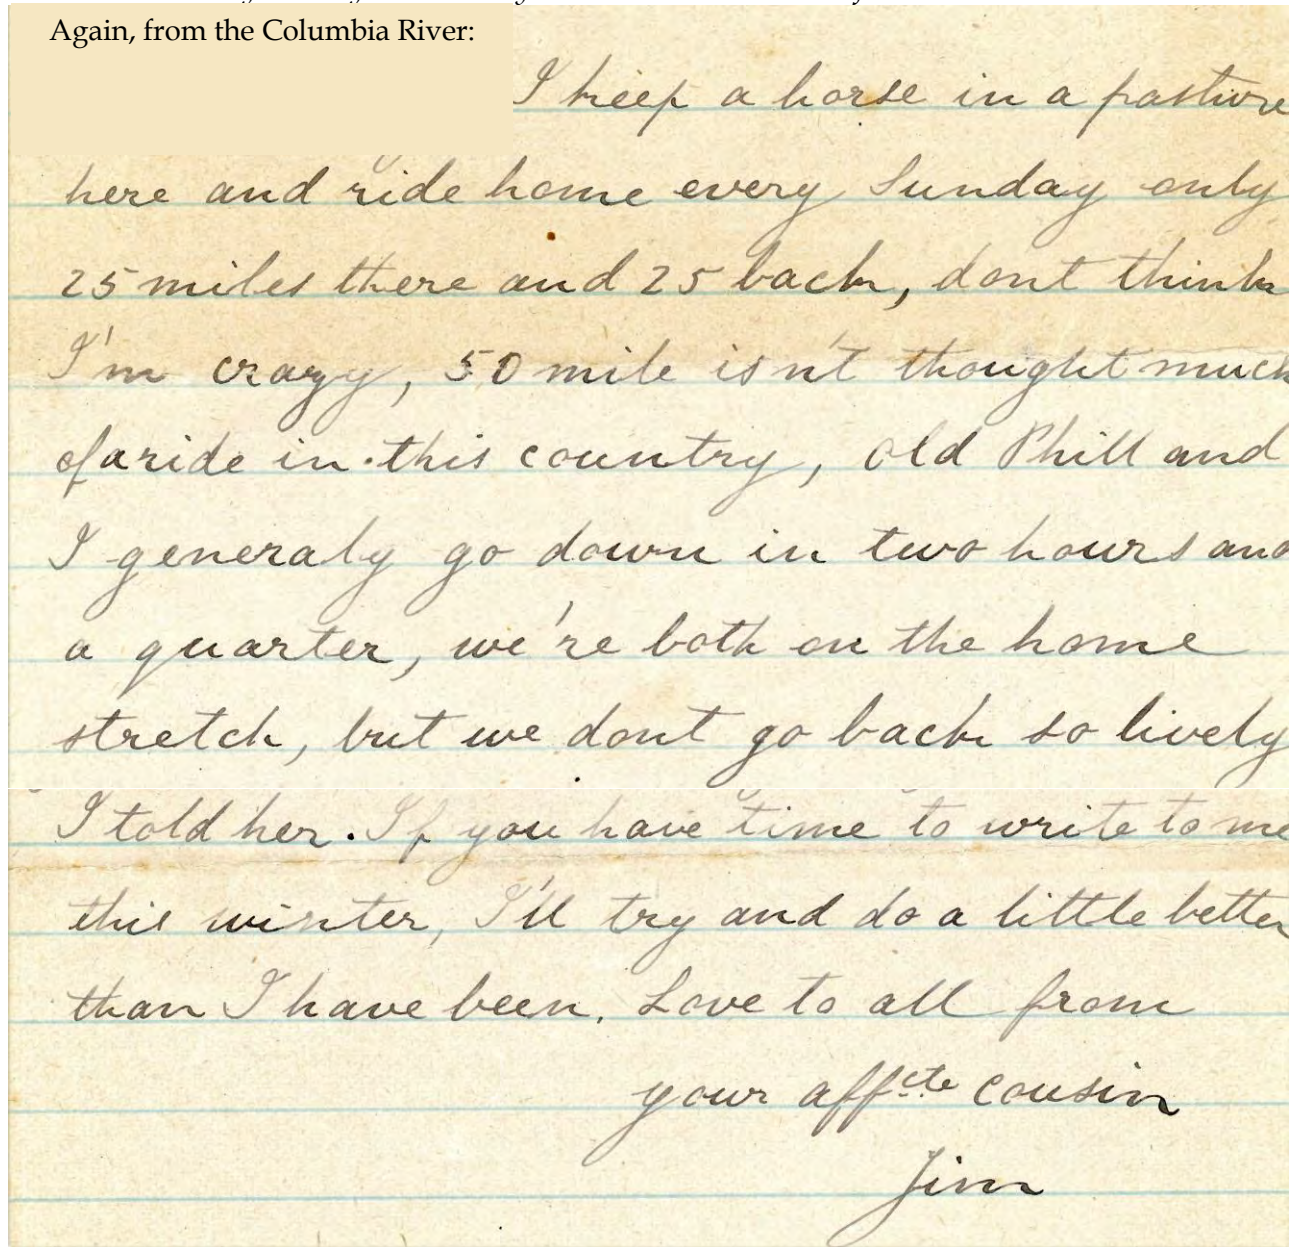 Again, from the Columbia River:
I keep a horse in a pasture
here and ride home every Sunday only
25 miles there and 25 back, dont think
I'm crazy, 50 mile isn't thought much
of a ride in this country, old Phill and
I generaly go down in two hours and
a quarter, we're both on the home
stretch, but we dont go back so lively
I told her. If you have time to write to me
this winter, I'll try and do a little better
than I have been. Love to all from
your affcte cousin
Jim